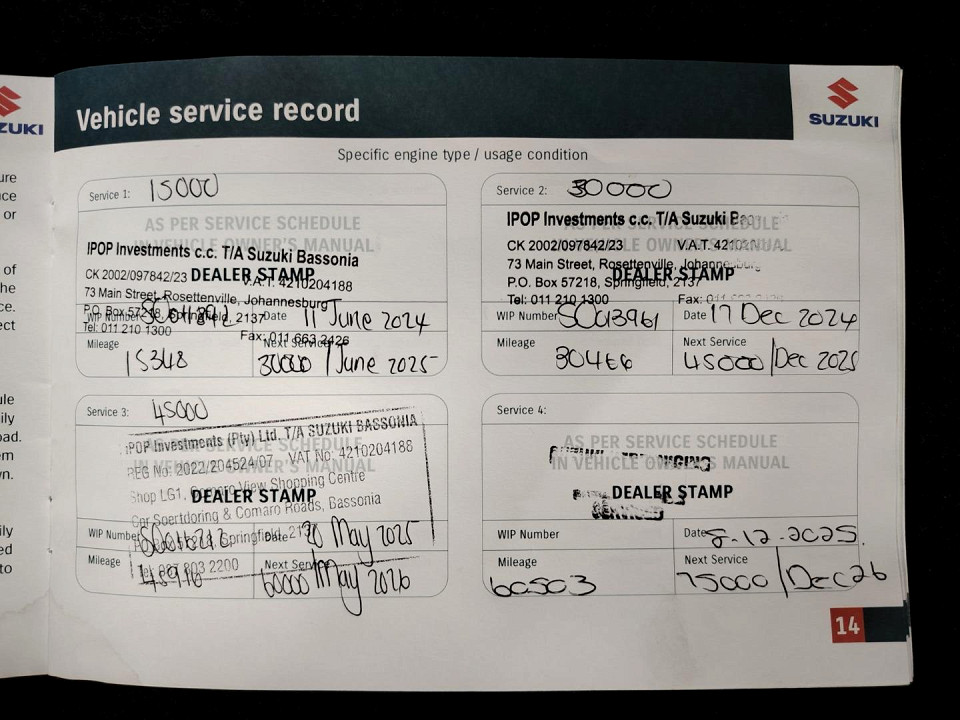 ZUKI
Vehicle service record
SUZUKI
Specific engine type / usage condition
Service 1: 15000
AS PER SERVICE SCHEDULE
IN VEHICLE OWNER'S MANUAL
IPOP Investments c.c. T/A Suzuki Bassonia
CK 2002/097842/23
V.A.T. 4210204188
DEALER STAMP
73 Main Street, Rosettenville, Johannesburg
P.O. Box 57218, Springfield, 2137
Tel: 011 210 1300
Fax: 011 663 2426
WIP Number
Date 11 June 2024
Mileage 15348
Next Service 30000 / June 2025
Service 2: 30000
AS PER SERVICE SCHEDULE
VEHICLE OWNER'S MANUAL
IPOP Investments c.c. T/A Suzuki
CK 2002/097842/23
V.A.T.
73 Main Street, Rosettenville, Johannesburg
DEALER STAMP
P.O. Box 57218, Springfield, 2137
Tel: 011 210 1300
Fax:
WIP Number SC013961
Date 17 Dec 2024
Mileage 30466
Next Service 45000 / Dec 2025
Service 3: 45000
AS PER SERVICE SCHEDULE
IN VEHICLE OWNER'S MANUAL
IPOP Investments (Pty) Ltd. T/A SUZUKI BASSONIA
REG No: 2022/204524/07 VAT No: 4210204188
Shop LG1, Comaro View Shopping Centre
DEALER STAMP
Cnr Soertdoring & Comaro Roads, Bassonia
Springfield,
WIP Number
Date 20 May 2025
Tel: 087 803 2200
Mileage
Next Service 60000 / May 2026
Service 4:
AS PER SERVICE SCHEDULE
IN VEHICLE OWNER'S MANUAL
DEALER STAMP
WIP Number
Date 8-12-2025
Mileage 60503
Next Service 75000 / Dec 26
14